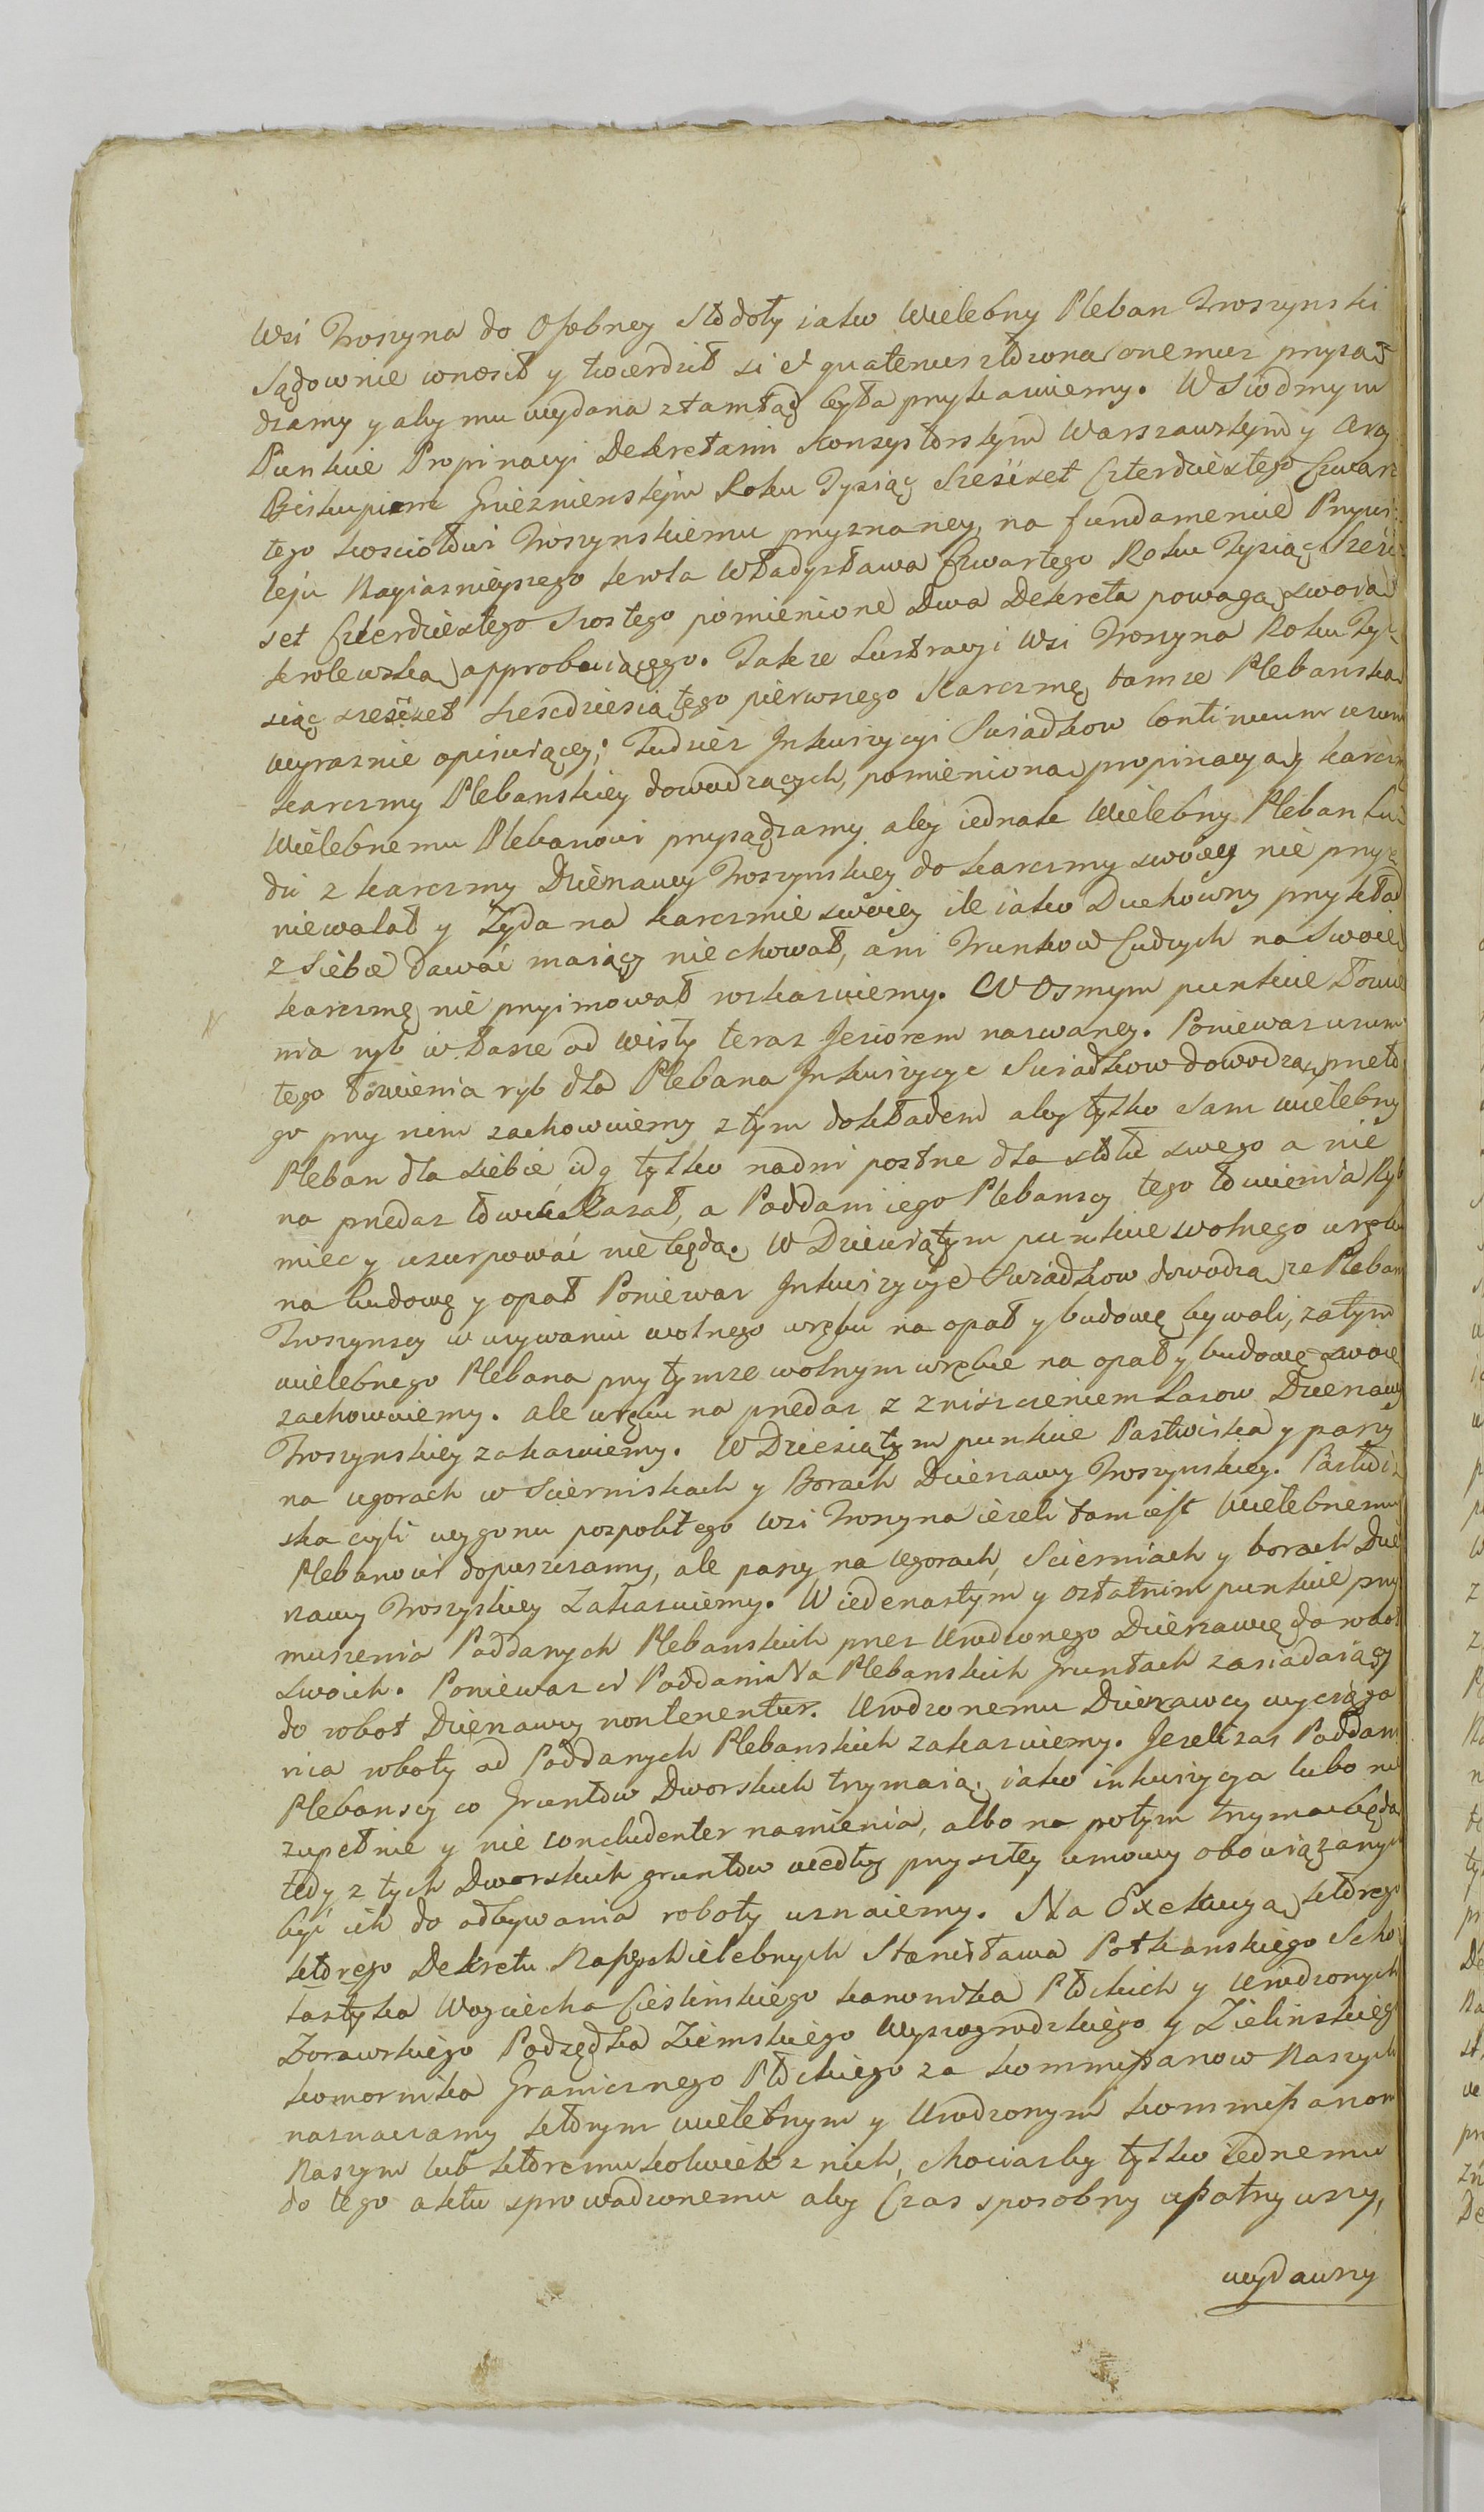 Wsi Troszyna do Osobney Stodoły iako Wielebny Pleban Troszynski
Sądownie wnosił y twierdził si et quatenus złożona onemuz przysą
dzamy y aby mu wydana ztamtąd była przykazuiemy. W Siodmym
Punkcie Propinacyi Dekretami Konsystorskym Warszawskym y Arcy
Biskupiem Gnieznienskym Roku Tysiąc Sześćset Czterdziestego Czwar
tego kosciołowi Troszynskiemu przyznaney, na fundamencie Przywi-
leju Nayiasnieyszego krola Władysława Czwartego Roku Tysiąc Sześć
set Czterdziestego Szostego pomienione Dwa Dekreta powagą swoią
krolewską approbuiącego. Takze Lustracyi Wsi Troszyna Roku Ty-
siąc sześćset sześcdziesiątego pierwszego Karczmę tamze Plebanską
wyraznie opisuiącey; Tudziez Inkwizycyi Swiadkow Continuum usum
karczmy Plebanskiey dowodzących, pomienioną propinacyą y karczmę
Wielebnemu Plebanowi przysądzamy aby iednak Wielebny Pleban Lu-
dzi z karczmy Dzierzawy Troszynskiey do karczmy swoiey nie przy-
niewalał y Zyda na karczmie swoiey ile iako Duchowny przykład
z Siebie dawać maiący nie chował, ani Trunkow Cudzych na Swoię
karczmę nie przyimował rozkazuiemy. W Osmym punkcie Łowie
nia ryb w Łasze od Wisły teraz Jeziorem nazwaney. Poniewaz usum
tego łowienia ryb dla Plebana Inkwizycye Swiadkow dowodzą, przeto
go przy nim zachowuiemy z tym dokładem aby tylko sam wielebny
Pleban dla siebie i to tylko na dni postne dla stołu swego a nie
na przedaz łowić kazał, a Poddani iego Plebanscy tego łowienia Ryb
miec y uzurpować nie będą. W Dziewiątym punkcie wolnego wrębu
na budowę y opał Poniewaz Inkwizycye Swiadkow dowodzą ze Plebani
Troszynscy w uzywaniu wolnego wrębu na opał y budowę bywali, zatym
wielebnego Plebana przy tymze wolnym wrębie na opał y budowę swoię
zachowuiemy. ale wrębu na przedaz z zniszczeniem Lasow Dzierzawy
Troszynskiey zakazuiemy. W Dziesiątym punkcie Pastwiska y paszy
na ugorach w Scierniskach y Borach Dzierzawy Troszynskiey. Pastwi-
ska czyli wygonu pospolitego Wsi Troszyna iezeli tam iest Wielebnemu
Plebanowi dopuszczamy, ale paszy na Ugorach, Scierniach y borach Dzier
zawy Troszyskiey Zakazuiemy. W iedenastym y ostatnim punkcie przy
muszenia Poddanych Plebanskich przez Urodzonego Dzierzawcę do robot
swoich. Poniewaz ci Poddani Na Plebanskich Gruntach zasiadaiący
do robot Dzierzawy non tenentur. Urodzonemu Dzierzawcy wyciąga
nia roboty od Poddanych Plebanskich zakazuiemy. Jezeli zas Poddani
Plebanscy co Gruntow Dworskich trzymaią, iako inkwizycya lubo nie
zupełnie y nie concludenter namienia, albo na potym trzymac będą
tedy z tych Dworskich gruntow wedłog przyszłey umowy obowiązanych
być ich do odbywania roboty uznaiemy. Na Exekucyą ktorego
ktorego Dekretu Naszego Wielebnych Stanisława Potkanskiego Scho
lastyka Woyciecha Cieslinskiego kanonika Płockich y Urodzonych
Zorawskiego Podsędka Ziemskiego Wyszogrodzkiego y Zielinskiego
komornika Granicznego Płockiego za kommissarzow Naszych
naznaczamy ktorym wielebnym y Urodzonym kommissarzom
Naszym lub ktoremukolwiek z nich, chociazby tylko iednemu
do tego aktu sprowadzonemu aby Czas sposobny upatrzywszy,
wydawszy